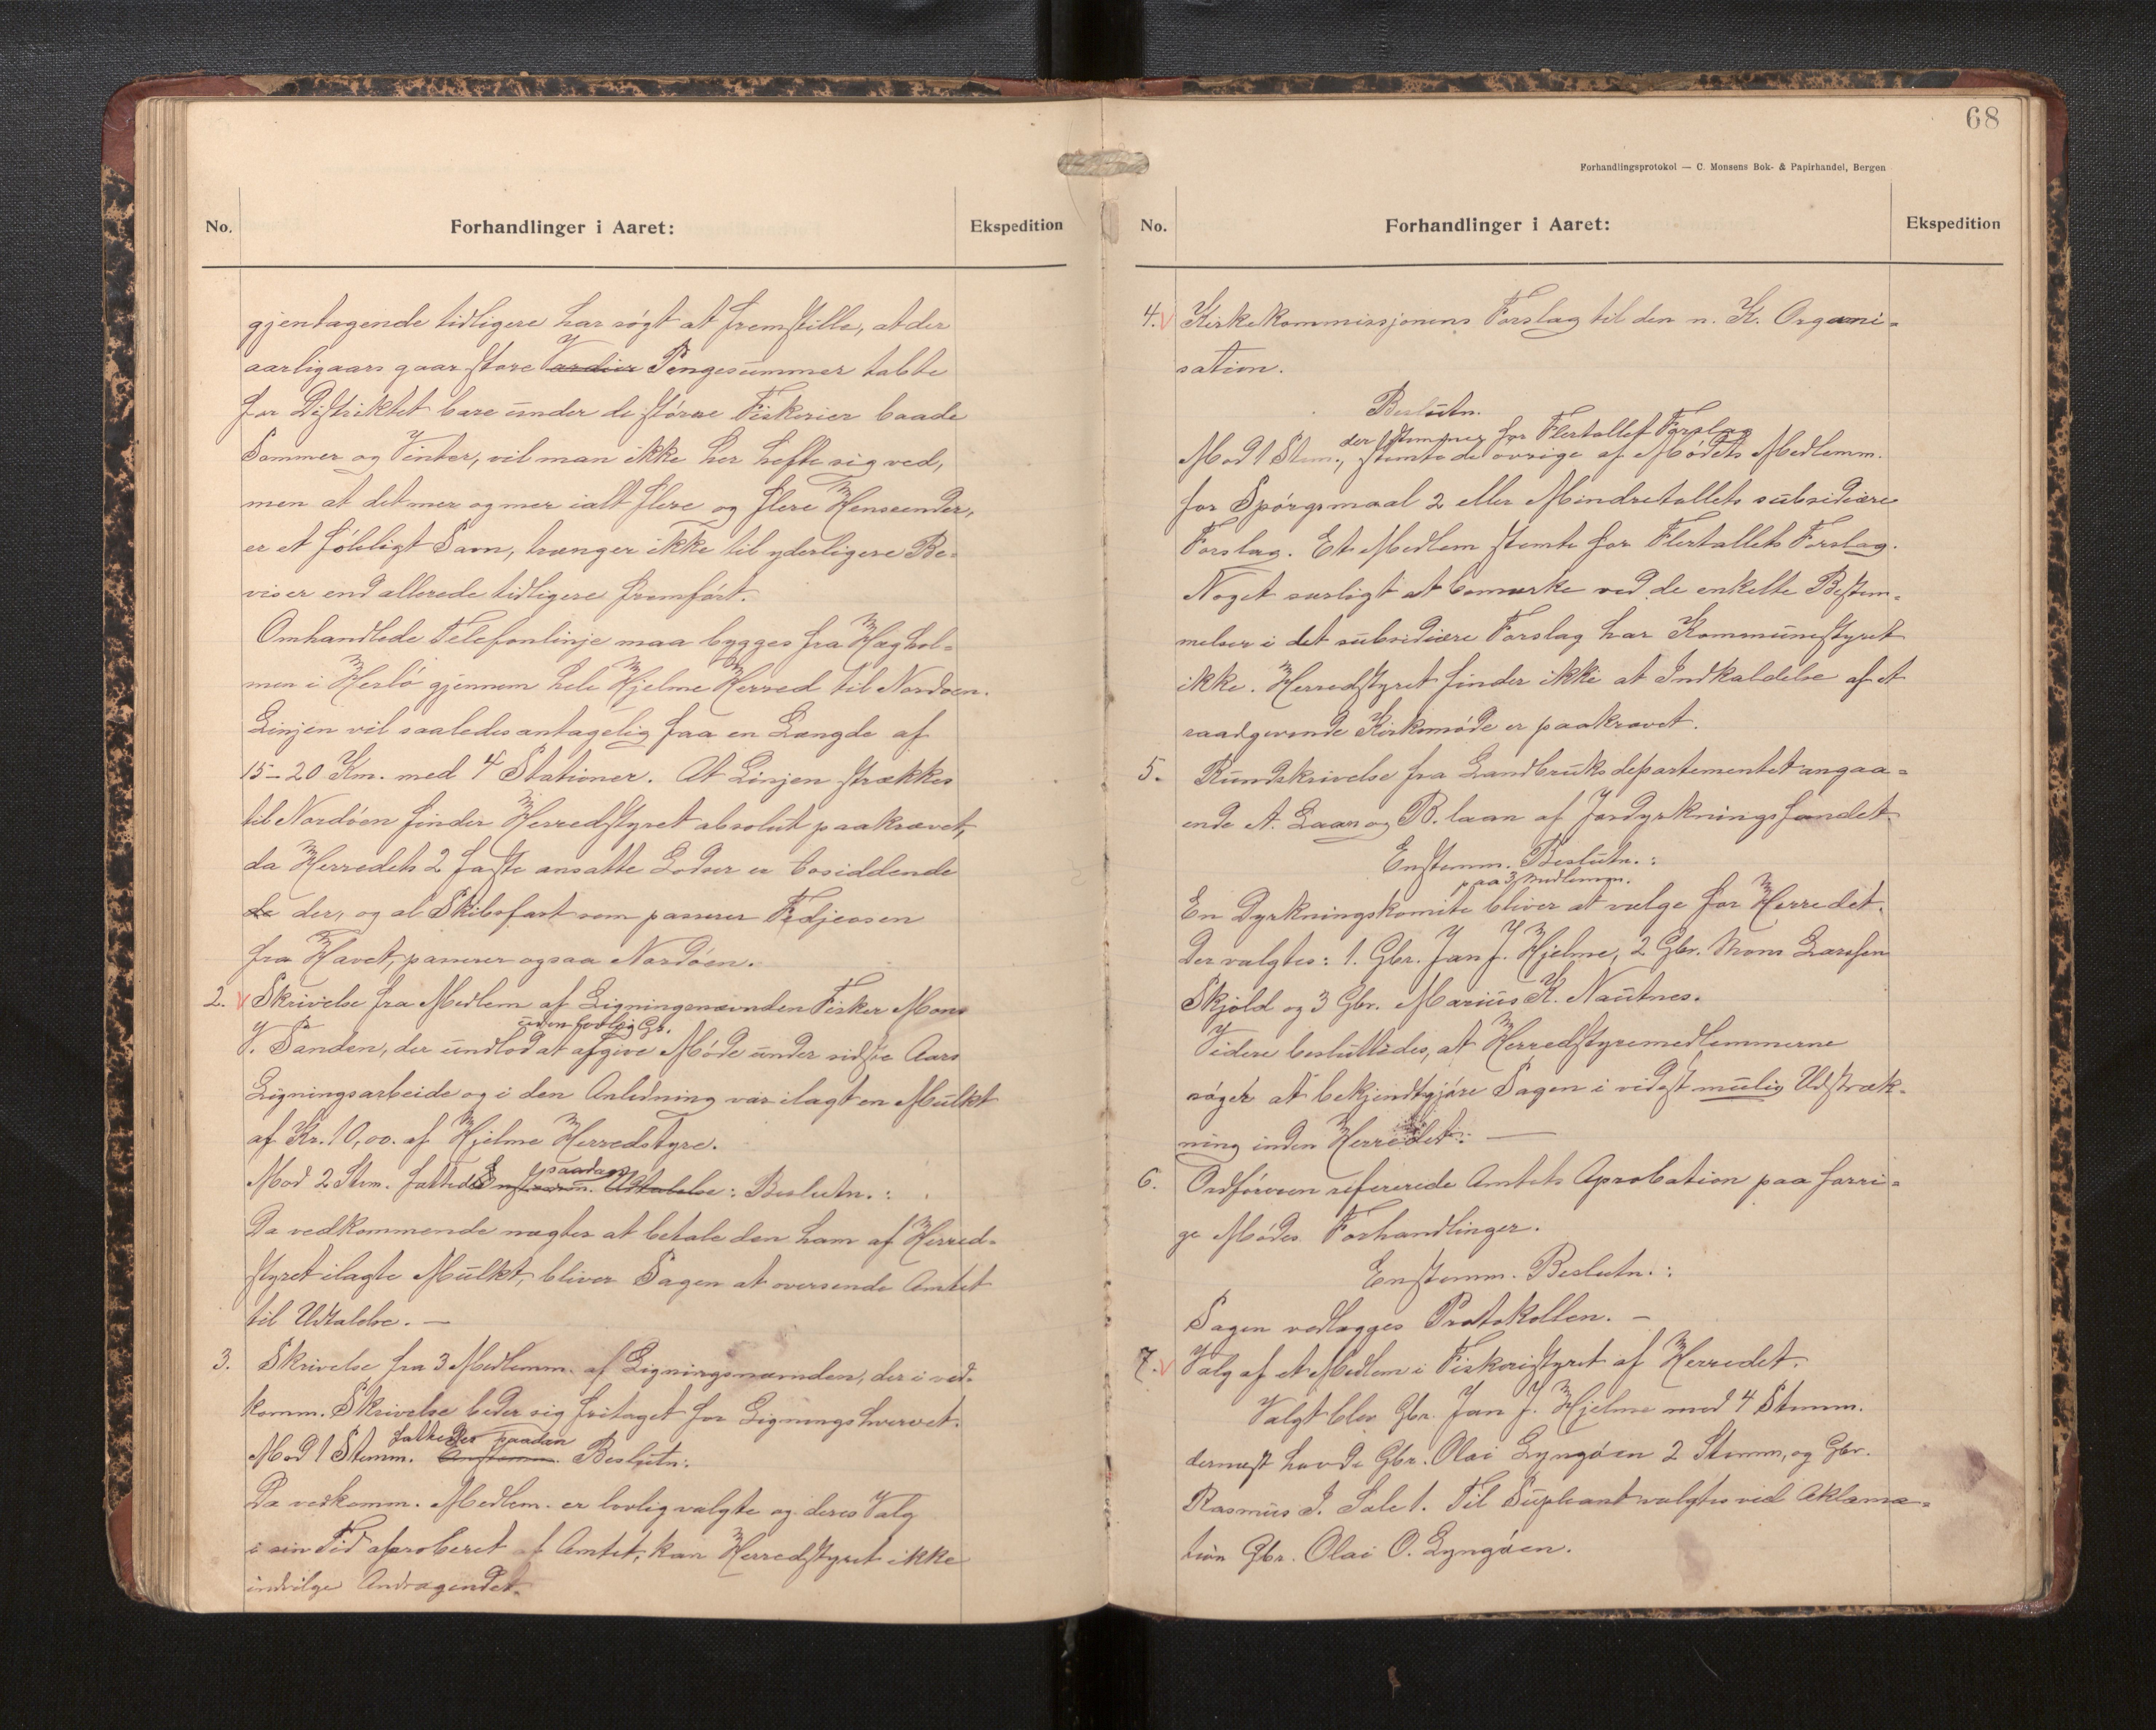 No. Forhandlinger i Aaret: Ekspedition
gjentagende tidligere har søgt at fremstille, at der
aarligaars gaar store Værdier Pengesummer tabte
for Distriktet bare under de større Fiskerier baade
Sommer og Vinter, vil man ikke her hefte sig ved,
men at det mer og mer ialt flere og flere Henseender,
er et føleligt Savn, trænger ikke til yderligere Be=
viser end allerede tidligere fremført.
Omhandlede Telefonlinje maa bygges fra Hæghol=
men i Herlø gjennem hele Hjelme Herred til Nordøen.
Linjen vil saaledes antagelig faa en Længde af
15-20 Km. med 4 Stationer. At Linjen strækkes
til Nordøen finder Herredstyret absolut paakrævet,
da Herredets 2 faste ansatte Lodser er bosiddende
de der, og al Skibsfart som passerer Fedjeosen
fra Havet, passerer ogsaa Nordøen.
2. Skrivelse fra Medlem af Ligningsnævnden Fisker Mons
uden lovlig Gr.
V. Sanden, der undlod at afgive Møde under sidste Aars
Ligningsarbeide og i den Anledning var ilagt en Mulkt
af Kr. 10,00. af Hjelme Herredstyre.
saadan
Mod 2 Stm. fattedes Enstemm. Udtalelse: Beslutn.:
Da vedkommende nægter at betale den ham af Herred=
styret ilagte Mulkt, bliver Sagen at oversende Amtet
til Udtalelse. —
3. Skrivelse fra 3 Medlemm. af Ligningsnævnden, der i ved=
komm. Skrivelse beder sig fritaget for Ligningshvervet.
fattedes saadan
Mod 1 Stemm. Enstemm. Beslutn:
Da vedkomm. Medlem. er lovlig valgte og deres Valg
i sin Tid aproberet af Amtet, kan Herredstyret ikke
indvilge Andragendet.
68
Forhandlingsprotokol — C. Monsens Bok- & Papirhandel, Bergen
No. Forhandlinger i Aaret: Ekspedition
4. Kirkekommissjonens Forslag til den n. K. Organi=
sation.
Beslutn.
der stemmer for Flertallet Forslag
Mod 1 Stem., stemte de øvrige af Mødets Medlemm.
for Spørgsmaal 2 eller Mindretallets subsidiære
Forslag. Et Medlem stemte for Flertallets Forslag.
Noget særligt at bemærke ved de enkelte Bestem=
melser i det subsidiære Forslag har Kommunestyret
ikke. Herredstyret finder ikke at Indkaldelse af et
raadgivende Kirkemøde er paakrævet.
5. Rundskrivelse fra Landbruksdepartementet angaa=
ende A. Laan og B. laan af Jordyrkningsfondet
Enstemm. Beslutn.:
paa 3 Medlemm.
En Dyrkningskomite bliver at vælge for Herredet.
Der valgtes: 1. Gbr. Jan J. Hjelme, 2 Gbr. Mons Larssen
Skjold og 3 Gbr. Marius K. Nautnes.
Videre besluttedes, at Herredstyremedlemmerne
søger at bekjendtgjøre Sagen i videst mulig Udstræk=
ning inden Herredet: —
6. Ordføreren refererede Amtets Aprobation paa forri=
ge Mødes Forhandlinger.
Enstemm. Beslutn.:
Sagen vedlægges Protokollen. —
7. Valg af et Medlem i Fiskeristyret af Herredet.
Valgt blev Gbr. Jan J. Hjelme med 4 Stemm.
dernæst havde Gbr. Olai Lyngøen 2 Stemm, og Gbr.
Rasmus J. Sæle 1. Til Supleant valgtes ved Aklama=
tion Gbr. Olai O. Lyngøen.